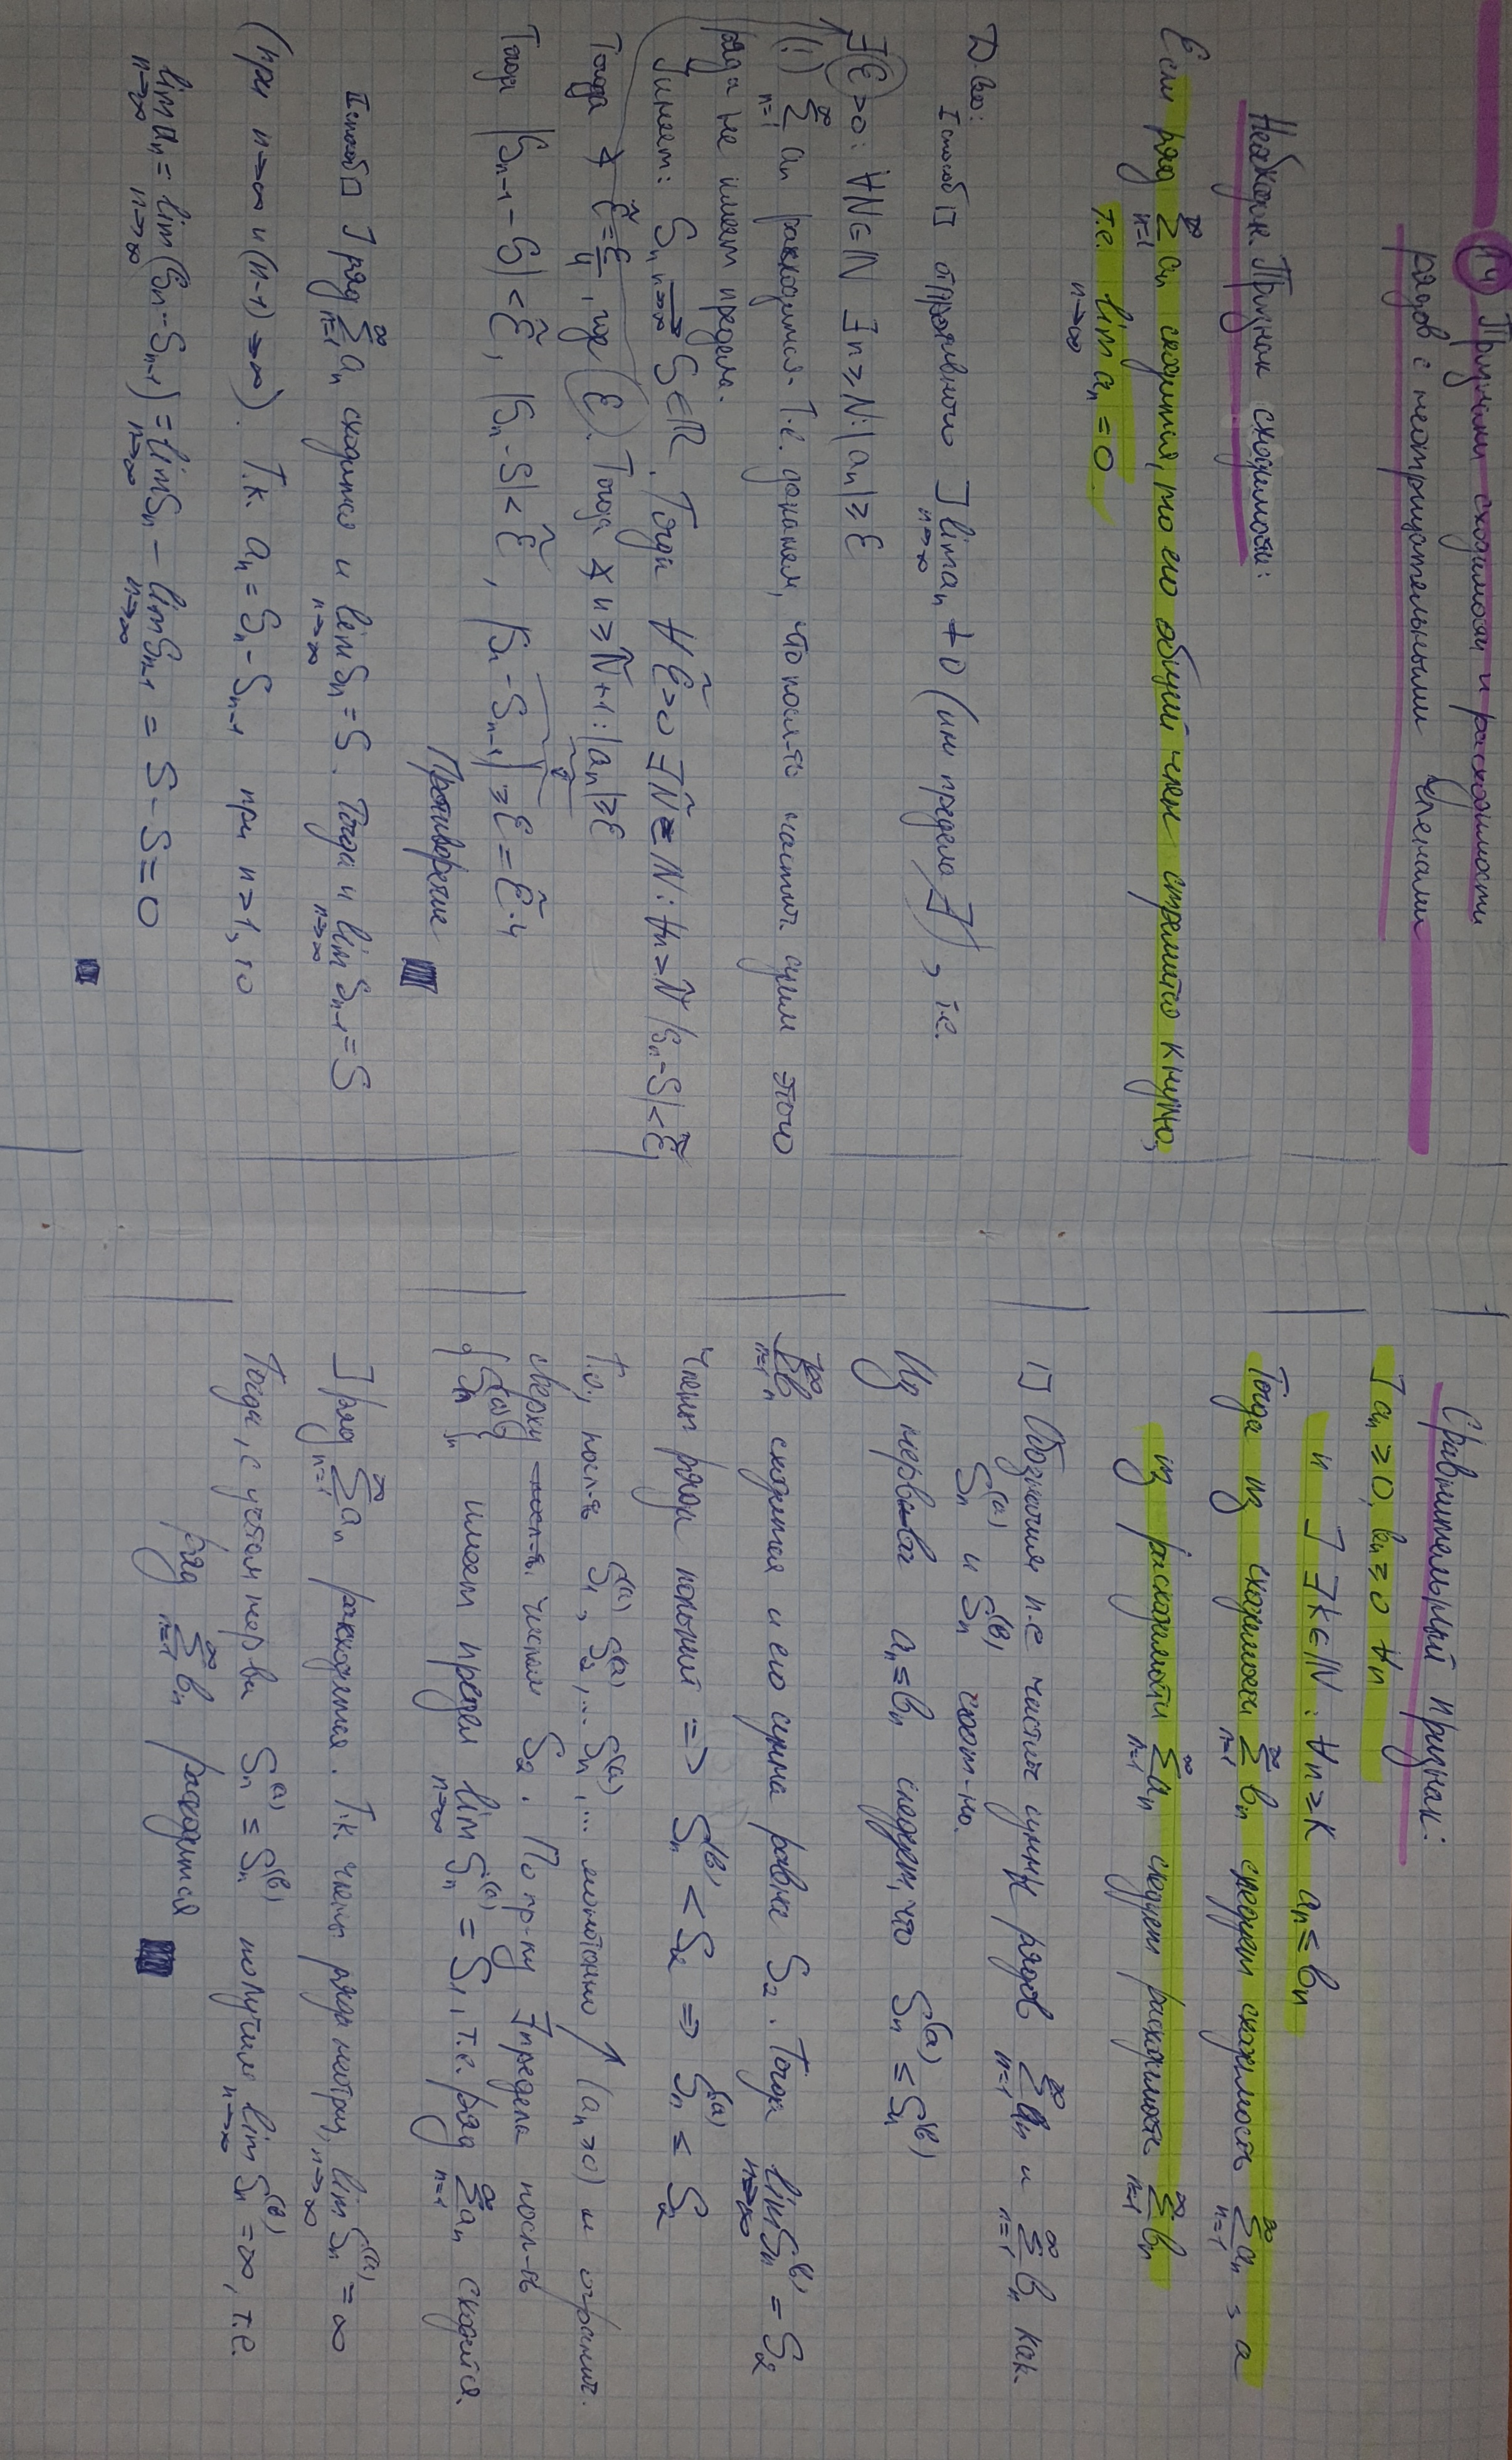 14 Признаки сходимости и расходимости
рядов с неотрицательными членами
Необходим. Признак сходимости:
Если ряд ∑_{n=1}^∞ aₙ сходится, то его общий член стремится к нулю,
т.е. lim_{n→∞} aₙ = 0
Д-во:
I способ □ от противного ] lim_{n→∞} aₙ ≠ 0 (или предела ∄), т.е.
∃ε>0: ∀N∈ℕ ∃n≥N: |aₙ| ≥ ε
(!) ∑_{n=1}^∞ aₙ расходится. Т.е. докажем, что посл-ть частич. сумм этого
ряда не имеет предела.
] имеет: Sₙ →_{n→∞} S∈ℝ. Тогда ∀ε̃>0 ∃Ñ∈ℕ: ∀n≥Ñ |Sₙ-S|<ε̃
Тогда ∡ ε̃=ε/4, где ε. Тогда ∡ n≥Ñ+1: |aₙ|≥ε
Тогда |Sₙ₋₁-S|<ε̃, |Sₙ-S|<ε̃, |Sₙ-Sₙ₋₁|≥ε=ε̃·4
Противоречие
II способ □ ] ряд ∑_{n=1}^∞ aₙ сходится и lim_{n→∞} Sₙ=S. Тогда и lim_{n→∞} Sₙ₋₁=S
(при n→∞ и (n-1)→∞). Т.к. aₙ=Sₙ-Sₙ₋₁ при n>1, то
lim_{n→∞} aₙ = lim_{n→∞} (Sₙ-Sₙ₋₁) = lim_{n→∞} Sₙ - lim_{n→∞} Sₙ₋₁ = S-S=0
Сравнительный признак:
] aₙ≥0, bₙ≥0 ∀n
и ] ∃k∈ℕ: ∀n≥k aₙ≤bₙ
Тогда из сходимости ∑_{n=1}^∞ bₙ следует сходимость ∑_{n=1}^∞ aₙ, а
из расходимости ∑_{n=1}^∞ aₙ следует расходимость ∑_{n=1}^∞ bₙ
□ Обозначим п-е частич суммы рядов ∑_{n=1}^∞ aₙ и ∑_{n=1}^∞ bₙ как
Sₙ^(a) и Sₙ^(b) соот-но.
Из нерва-ва aₙ≤bₙ следует, что Sₙ^(a) ≤ Sₙ^(b)
] ∑_{n=1}^∞ bₙ сходится и его сумма равна S₂. Тогда lim_{n→∞} Sₙ^(b) = S₂
Члены ряда полож => Sₙ^(b) < S₂ => Sₙ^(a) ≤ S₂
Т.о., посл-ть S₁^(a), S₂^(a), ... Sₙ^(a), ... монотонно ↗ (aₙ≥0) и огранич.
сверху числом S₂. По пр-ку ∃ предела посл-ть
{Sₙ^(a)}ₙ имеет предел lim_{n→∞} Sₙ^(a) = S₁, т.е. ряд ∑_{n=1}^∞ aₙ сходится.
] ряд ∑_{n=1}^∞ aₙ расходится. Т.к. члены ряда неотриц, lim_{n→∞} Sₙ^(a) = ∞
Тогда, с учётом нер-ва Sₙ^(a) ≤ Sₙ^(b) получим lim_{n→∞} Sₙ^(b) = ∞, т.е.
ряд ∑_{n=1}^∞ bₙ расходится